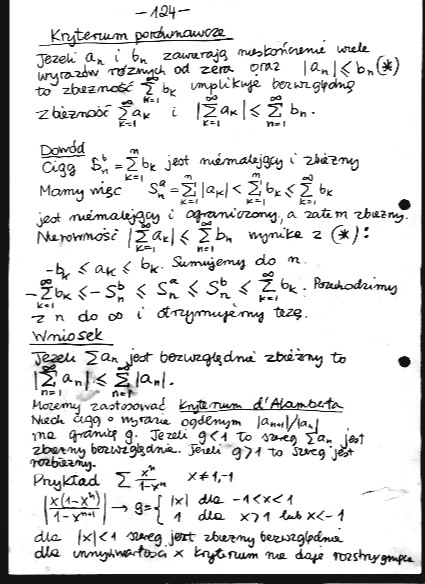 -124-
Kryterium porównawcze
Jeżeli aₙ i bₙ zawierają nieskończenie wiele
wyrazów różnych od zera oraz |aₙ| ≤ bₙ (*)
to zbieżność ∑_{k=1}^{∞} bₖ implikuje bezwzględną
zbieżność ∑_{k=1}^{∞} aₖ i |∑_{k=1}^{∞} aₖ| ≤ ∑_{n=1}^{∞} bₙ.
Dowód
Ciąg Sₙᵇ = ∑_{k=1}^{n} bₖ jest niemalejący i zbieżny
Mamy więc Sₙᵃ = ∑_{k=1}^{n} |aₖ| < ∑_{k=1}^{n} bₖ ≤ ∑_{k=1}^{∞} bₖ
jest niemalejący i ograniczony, a zatem zbieżny.
Nierówność |∑_{k=1}^{∞} aₖ| ≤ ∑_{n=1}^{∞} bₙ wynika z (*):
-bₖ ≤ aₖ ≤ bₖ. Sumujemy do n.
-∑_{k=1}^{∞} bₖ ≤ -Sₙᵇ ≤ Sₙᵃ ≤ Sₙᵇ ≤ ∑_{k=1}^{∞} bₖ. Przechodzimy
z n do ∞ i otrzymujemy tezę.
Wniosek
Jeżeli ∑aₙ jest bezwzględnie zbieżny to
|∑_{n=1}^{∞} aₙ| ≤ ∑_{n=1}^{∞} |aₙ|.
Możemy zastosować kryterium d'Alamberta
Niech ciąg o wyrazie ogólnym |aₙ₊₁|/|aₙ|
ma granicę g. Jeżeli g<1 to szereg ∑aₙ jest
zbieżny bezwzględnie. Jeżeli g>1 to szereg jest
rozbieżny.
Przykład ∑ xⁿ/(1-xⁿ) x≠1,-1
|x(1-xⁿ)/(1-xⁿ⁺¹)| → g = { |x| dla -1<x<1
1 dla x>1 lub x<-1
dla |x|<1 szereg jest zbieżny bezwzględnie
dla innych wartości x kryterium nie daje rozstrzygnięcia